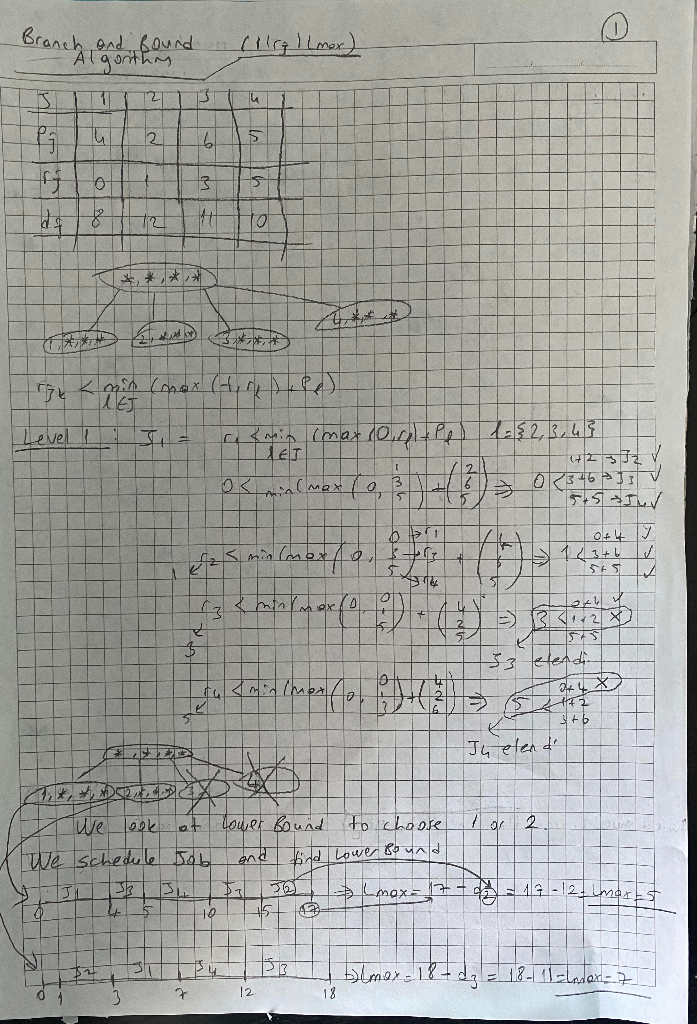 1
Branch and Bound (1|rj|Lmax)
Algorithm
J 1 2 3 4
Pj 4 2 6 5
rj 0 1 3 5
dj 8 12 11 10
*,*,*,*
1,*,*,* 2,*,*,* 3,*,*,* 4,*,*,*
rjk < min (max (t, rl) + Pl)
l∈J
Level 1: J1 = r1 < min (max (0, rl) + Pl) l = {2,3,4}
l∈J
0 < min (max (0, 1 3 5) + (2 6 5) ⇒ 0 < 1+2 → J2 ✓ 3+6 → J3 ✓ 5+5 → J4 ✓
1 r2 < min (max (0, 0 → r1 3 → r3 5 → r4 + (4 6 5) ⇒ 1 < 0+4 ✓ 3+6 ✓ 5+5 ✓
3 r3 < min (max (0, 0 1 5) + (4 2 5) ⇒ 3 < 0+4 ✓ 1+2 X 5+5
J3 elendi.
5 r4 < min (max (0, 0 1 3) + (4 2 6) ⇒ 5 < 0+4 X 1+2 3+6
J4 elendi
*,*,*,*
1,*,*,* 2,*,*,* 3, 4
We look at lower Bound to choose 1 or 2.
We schedule Job and find lower Bound
J1 J3 J4 J3 J2 ⇒ Lmax = 17 - d2 = 17 - 12 = Lmax = 5
0 4 5 10 15 17
J2 J1 J4 J3 ⇒ Lmax = 18 - d3 = 18 - 11 = Lmax = 7
0 1 3 7 12 18